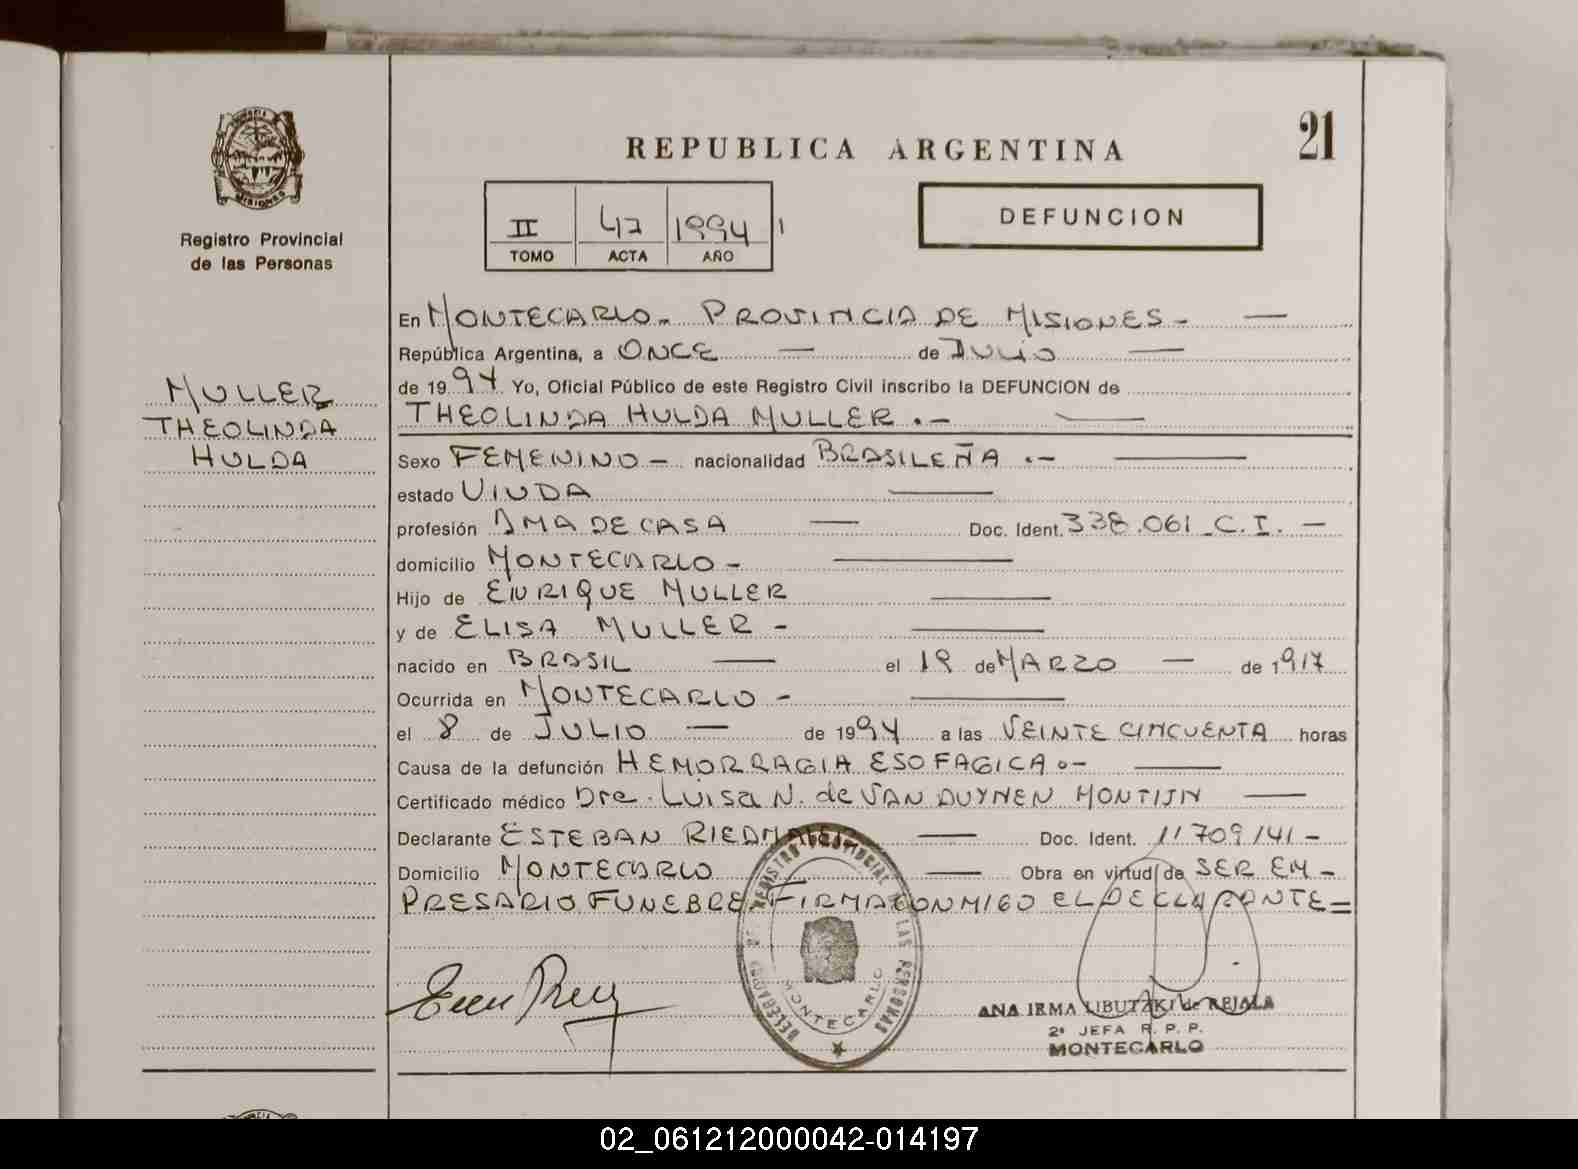 REPUBLICA ARGENTINA
21
PROVINCIA
MISIONES
Registro Provincial
de las Personas
II 47 1994
TOMO ACTA AÑO
DEFUNCION
MULLER
THEOLINDA
HULDA
En MONTECARLO - PROVINCIA DE MISIONES -
República Argentina, a ONCE de JULIO
de 1994 Yo, Oficial Público de este Registro Civil inscribo la DEFUNCION de
THEOLINDA HULDA MULLER .-
Sexo FEMENINO - nacionalidad BRASILEÑA .-
estado VIUDA
profesión AMA DE CASA Doc. Ident. 338.061 - C.I. -
domicilio MONTECARLO -
Hijo de ENRIQUE MULLER
y de ELISA MULLER -
nacido en BRASIL el 19 de MARZO de 1917
Ocurrida en MONTECARLO -
el 8 de JULIO de 1994 a las VEINTE CINCUENTA horas
Causa de la defunción HEMORRAGIA ESOFAGICA .-
Certificado médico Dra. LUISA N. de VAN DUYNEN MONTIJN
Declarante ESTEBAN RIEDMAIER Doc. Ident. 11709141 -
Domicilio MONTECARLO Obra en virtud de SER EM-
PRESARIO FUNEBRE FIRMA CONMIGO EL DECLARANTE =
DELEGACION DEL REGISTRO PROVINCIAL DE LAS PERSONAS
MONTECARLO
ANA IRMA LIBUTZKI de REJALA
2ª JEFA R. P. P.
MONTECARLO
02_061212000042-014197